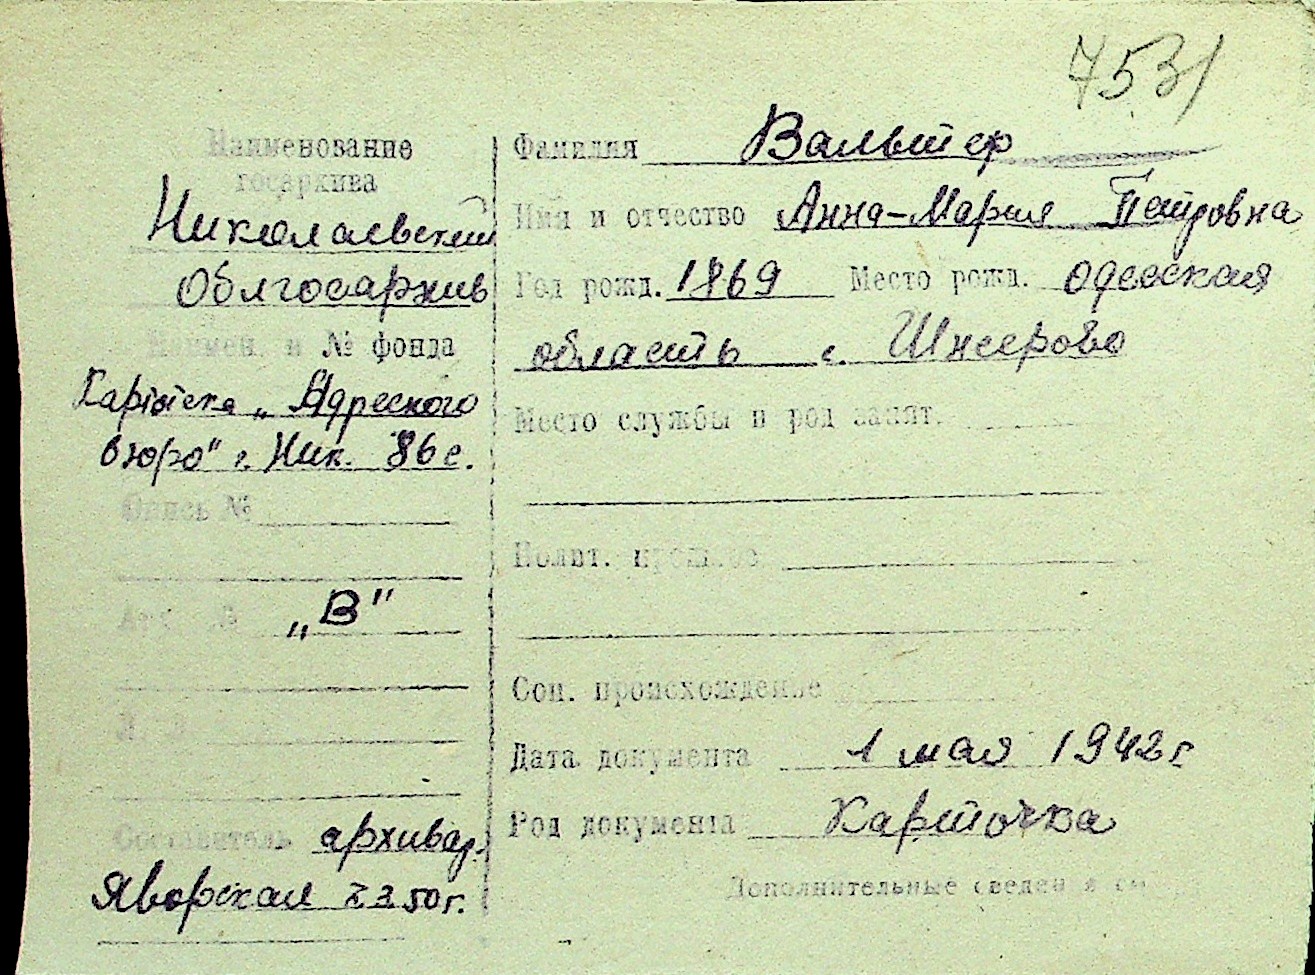 7531
Наименование
госархива
Николаевский
Облгосархив
Наимен. и № фонда
Картотека „Адресного
бюро" г. Ник. 86 с.
Опись №
„В"
Составитель архивар.
Яворская 50г.
Фамилия Вальтер
Имя и отчество Анна-Мария Петровна
Год рожд. 1869 Место рожд. одесская
область с. Шпеерово
Место службы и род занят.
Полит. прошлое
Соц. происхождение
Дата документа 1 мая 1942г
Род документа Карточка
Дополнительные сведен